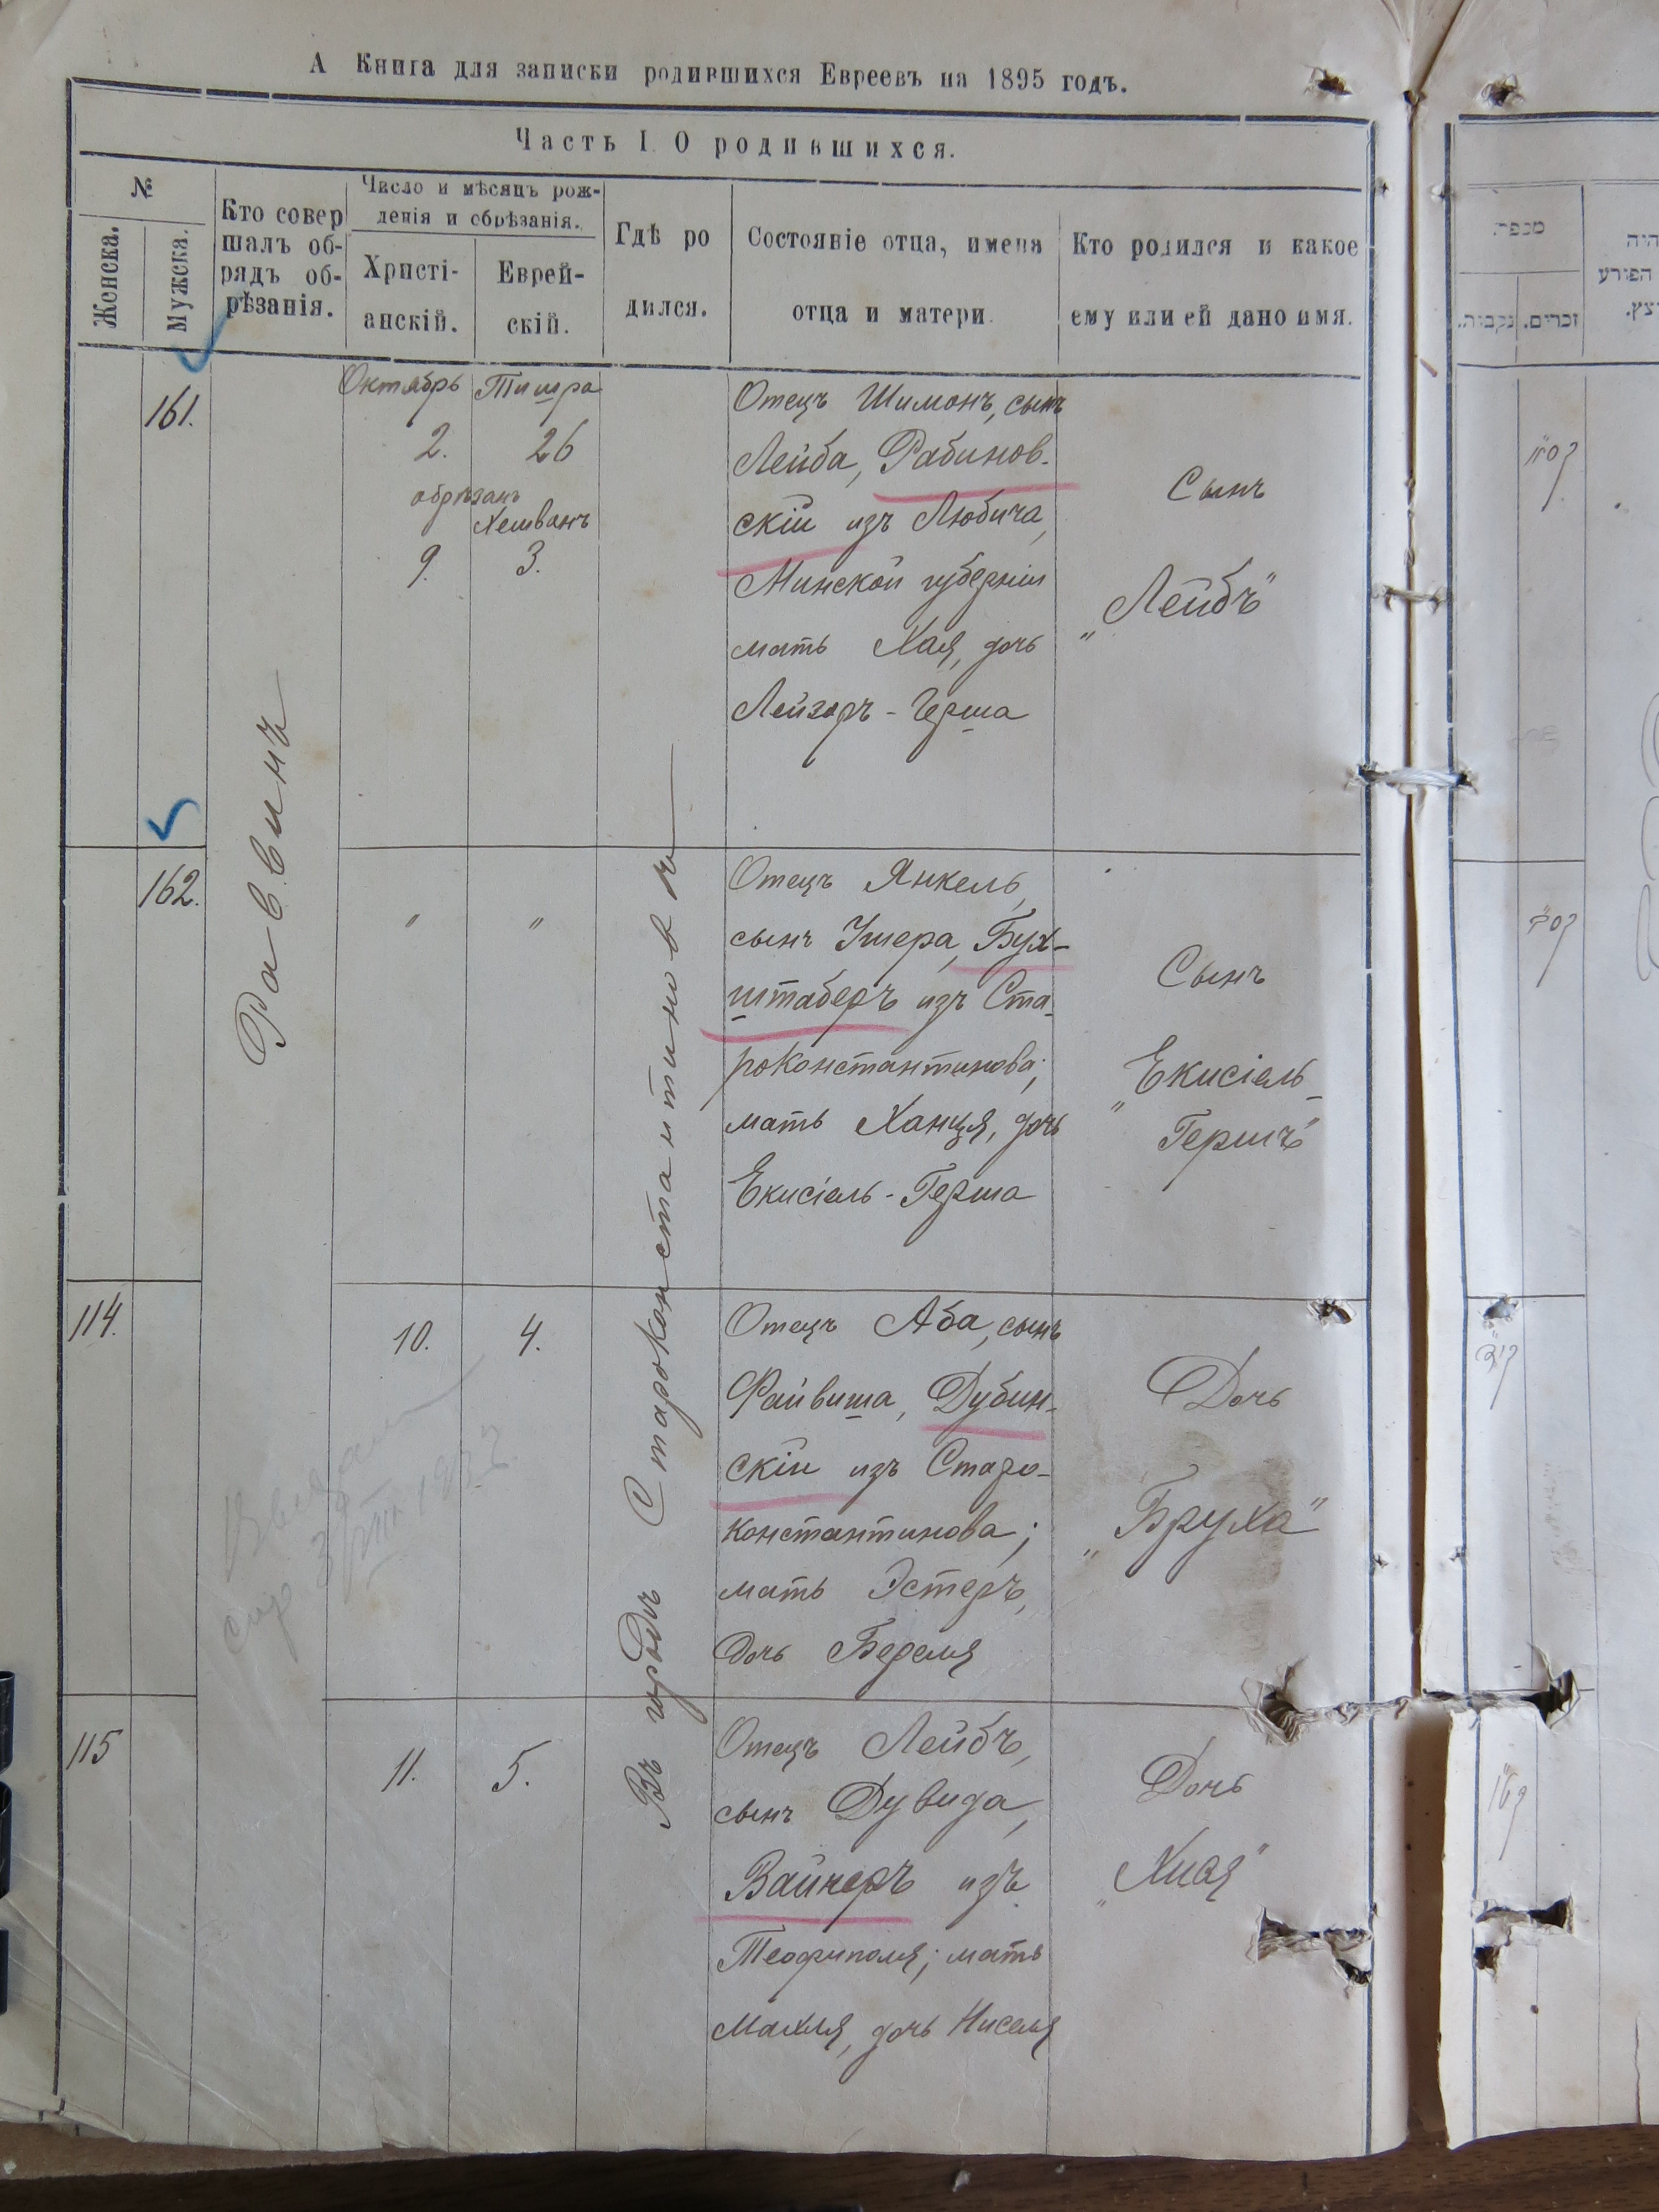 А Книга для записки родившихся Евреевъ на 1895 годъ.
Часть I. О родившихся.
№
Женска.
Мужска.
Кто совер
шалъ об-
рядъ об-
рѣзанія.
Число и мѣсяцъ рож-
денія и обрѣзанія.
Христі-
анскій.
Еврей-
скій.
Гдѣ ро
дился.
Состояніе отца, имена
отца и матери.
Кто родился и какое
ему или ей дано имя.
Раввинъ
Въ городѣ Староконстантиновѣ
161.
Октябрь Тишра
2. 26
обрѣзанъ
Хешванъ
9. 3.
Отецъ Шимонъ, сынъ
Лейба, Рабинов-
скій изъ Любича,
Минской губерніи
мать Хая, дочь
Лейзоръ - Герша
Сынъ
„Лейбъ"
162.
" "
Отецъ Янкель,
сынъ Ушера, Бух-
штаберъ изъ Ста-
роконстантинова;
мать Ханця, дочь
Екисіель - Герша
Сынъ
„Екисіель-
Гершъ"
114.
10. 4.
Отецъ Аба, сынъ
Файвиша, Дубин-
скій изъ Старо-
константинова;
мать Эстеръ,
дочь Береля
Дочь
„Бруха"
115
11. 5.
Отецъ Лейбъ,
сынъ Дувида,
Вайнеръ изъ
Теофиполя; мать
Махля, дочь Киселя
Дочь
„Хися"
מספר
זכרים.
נקבות.
היה
הפורע